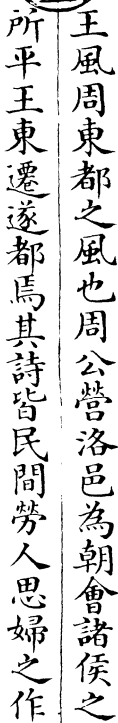 王風周東都之風也周公營洛邑為朝會諸侯之
所平王東遷遂都焉其詩皆民間勞人思婦之作